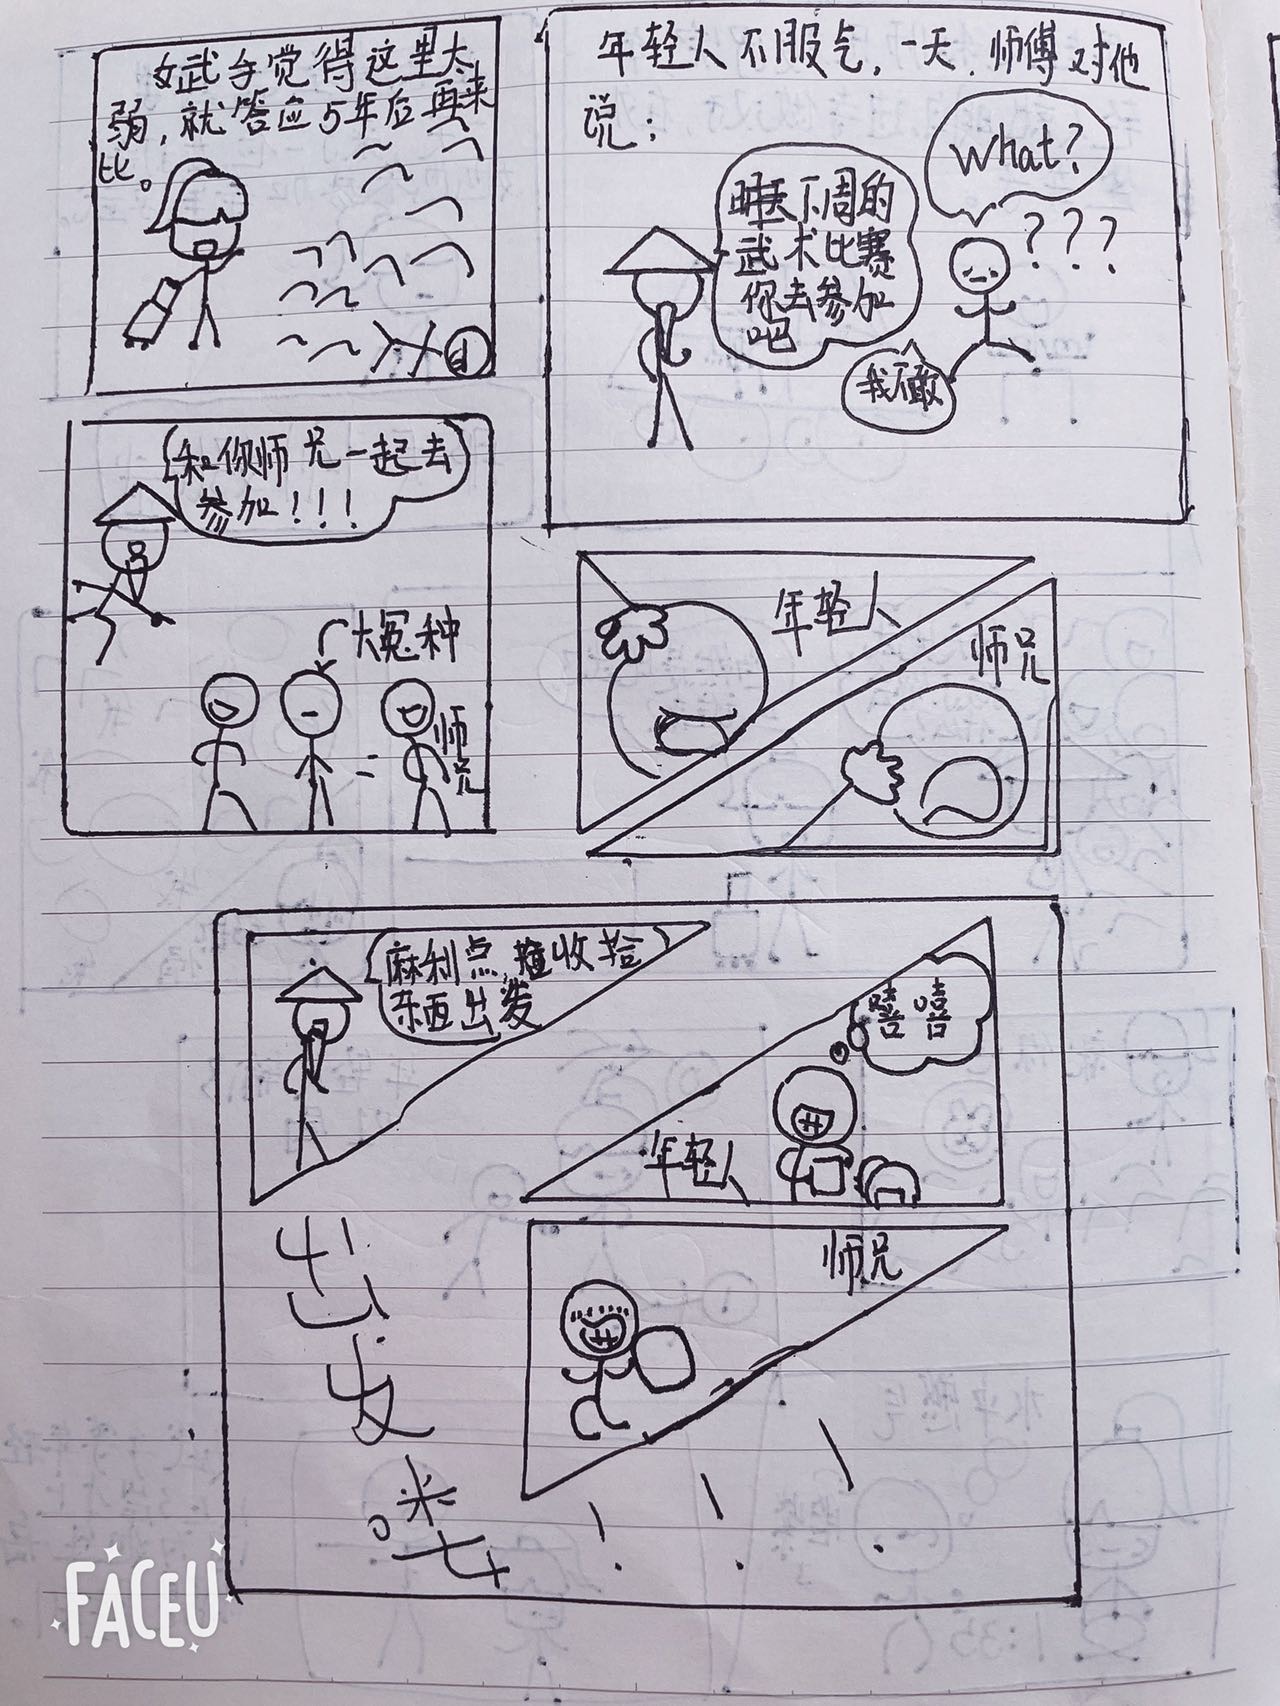 女武者觉得这里太
弱，就答应5年后再来
比。
年轻人不服气，一天，师傅对他
说：
下周的
武术比赛
你去参加
吧
What?
???
我不敢
和你师兄一起去
参加!!!
大冤种
师兄
年轻人
师兄
麻利点,收拾
东西出发
嘻嘻
年轻人
师兄
出
发
喽
!!!
FACEU